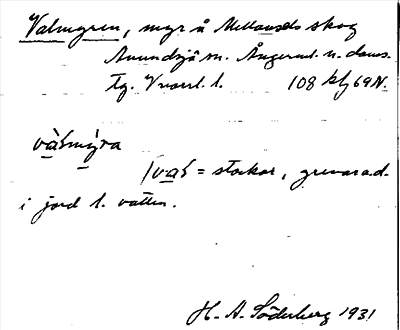 Valmyren, myr å Mellansels skog
Anundsjö sn. Ångerml. n. doms.
tg. V norrl. l. 108 kbj 69 N.
vàšmy̆ra
/vaš = stockar, grenar o. d.
i jord l. vatten.
H. A. Söderberg 1931